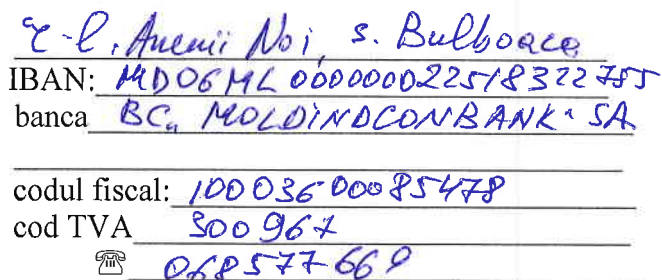 r-l. Anenii Noi, s. Bulboaca
IBAN: MD06ML000000022518322755
banca BC„ MOLDINDCONBANK“ SA
codul fiscal: 10003600085478
cod TVA 300967
☏ 068577669